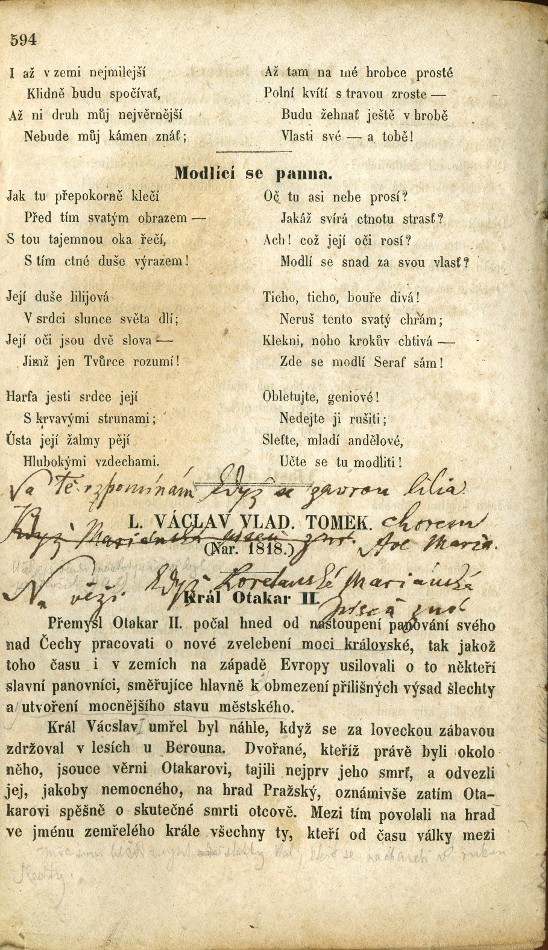 594
I až v zemi nejmilejší
Klidně budu spočívať,
Až ni druh můj nejvěrnější
Nebude můj kámen znáť;
Až tam na mé hrobce prosté
Polní kvítí s travou zroste —
Budu žehnať ještě v hrobě
Vlasti své — a tobě!
Modlící se panna.
Jak tu přepokorně klečí
Před tím svatým obrazem —
S tou tajemnou oka řečí,
S tím ctné duše výrazem!
Její duše lilijová
V srdci slunce světa dlí;
Její oči jsou dvě slova —
Jimž jen Tvůrce rozumí!
Harfa jesti srdce její
S krvavými strunami;
Ústa její žalmy pějí
Hlubokými vzdechami.
Oč tu asi nebe prosí?
Jakáž svírá ctnotu strasť?
Ach! což její oči rosí?
Modlí se snad za svou vlasť?
Ticho, ticho, bouře divá!
Neruš tento svatý chrám;
Klekni, noho krokův chtivá —
Zde se modlí Seraf sám!
Obletujte, geniové!
Nedejte ji rušiti;
Sleťte, mladí andělové,
Učte se tu modliti!
Na Tě vzpomínám když se zavrou lilia
L. VÁCLAV VLAD. TOMEK.
chorem
Když Mariánská
Ave Maria.
(Nar. 1818.)
Na věži. Když Loretanská Mariánská
Král Otakar II.
Přemysl Otakar II. počal hned od nastoupení panování svého
nad Čechy pracovati o nové zvelebení moci královské, tak jakož
toho času i v zemích na západě Evropy usilovali o to někteří
slavní panovníci, směřujíce hlavně k obmezení přílišných výsad šlechty
a utvoření mocnějšího stavu městského.
Král Vácslav umřel byl náhle, když se za loveckou zábavou
zdržoval v lesích u Berouna. Dvořané, kteříž právě byli okolo
něho, jsouce věrni Otakarovi, tajili nejprv jeho smrť, a odvezli
jej, jakoby nemocného, na hrad Pražský, oznámivše zatím Ota-
karovi spěšně o skutečné smrti otcově. Mezi tím povolali na hrad
ve jménu zemřelého krále všechny ty, kteří od času války mezi